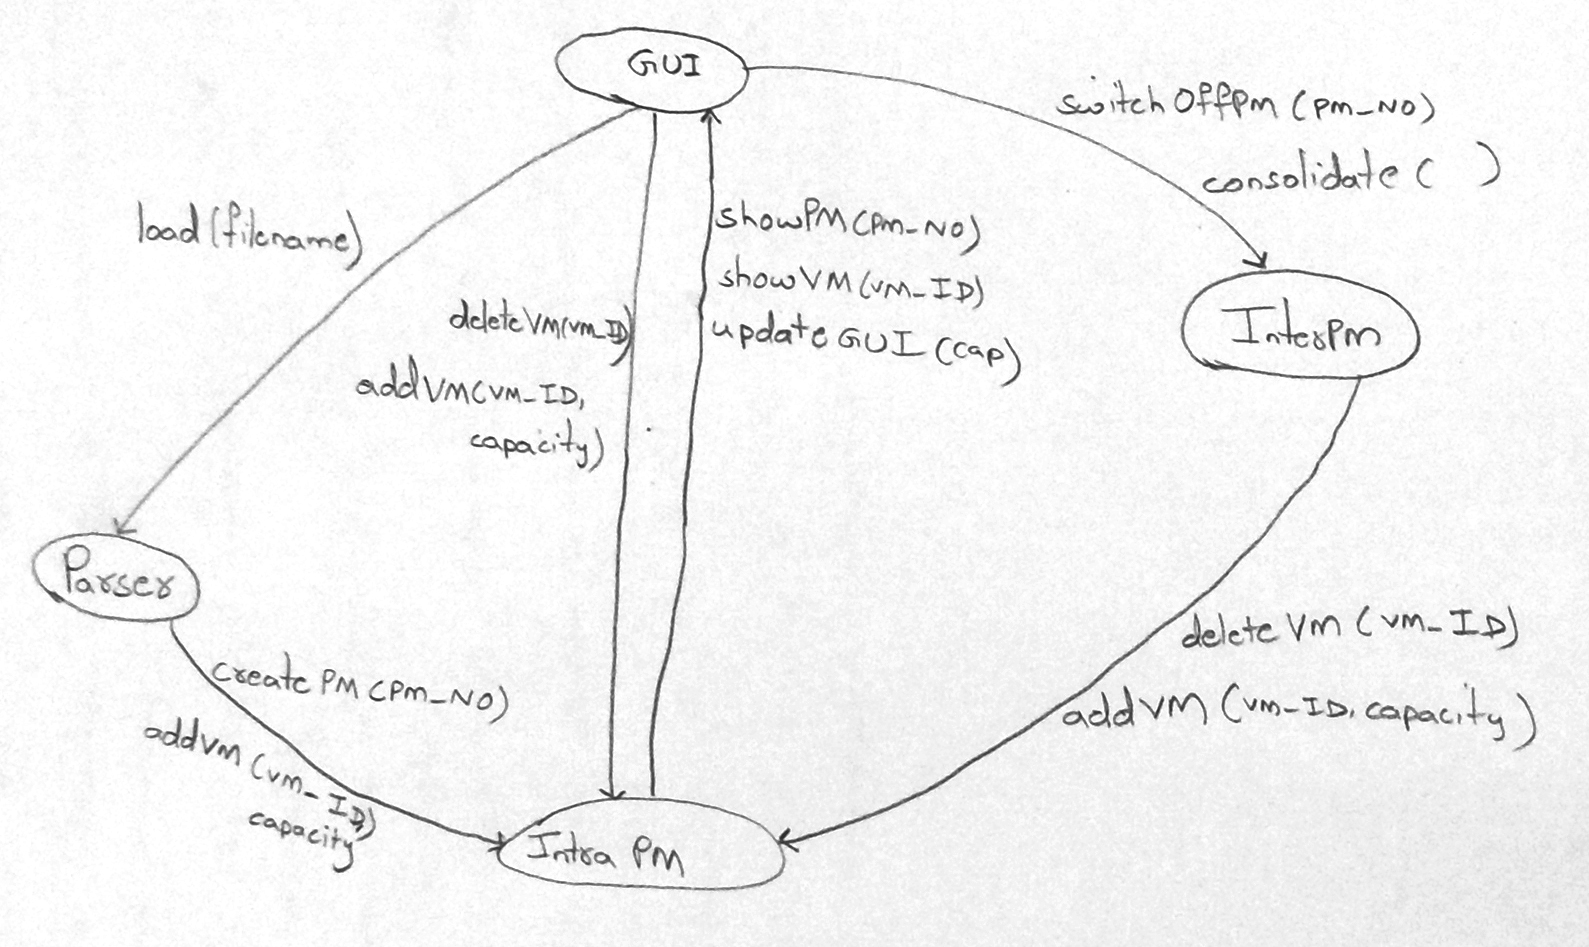 GUI
switchOffPM (PM_NO)
consolidate ( )
load(filename)
showPM(PM_NO)
showVM(VM_ID)
updateGUI (cap)
deleteVM(VM_ID)
addVM(VM_ID,
capacity)
InterPM
Parser
createPM(PM_NO)
addVM (VM_ID,
capacity)
deleteVM (VM_ID)
addVM (VM_ID, capacity)
Intra PM